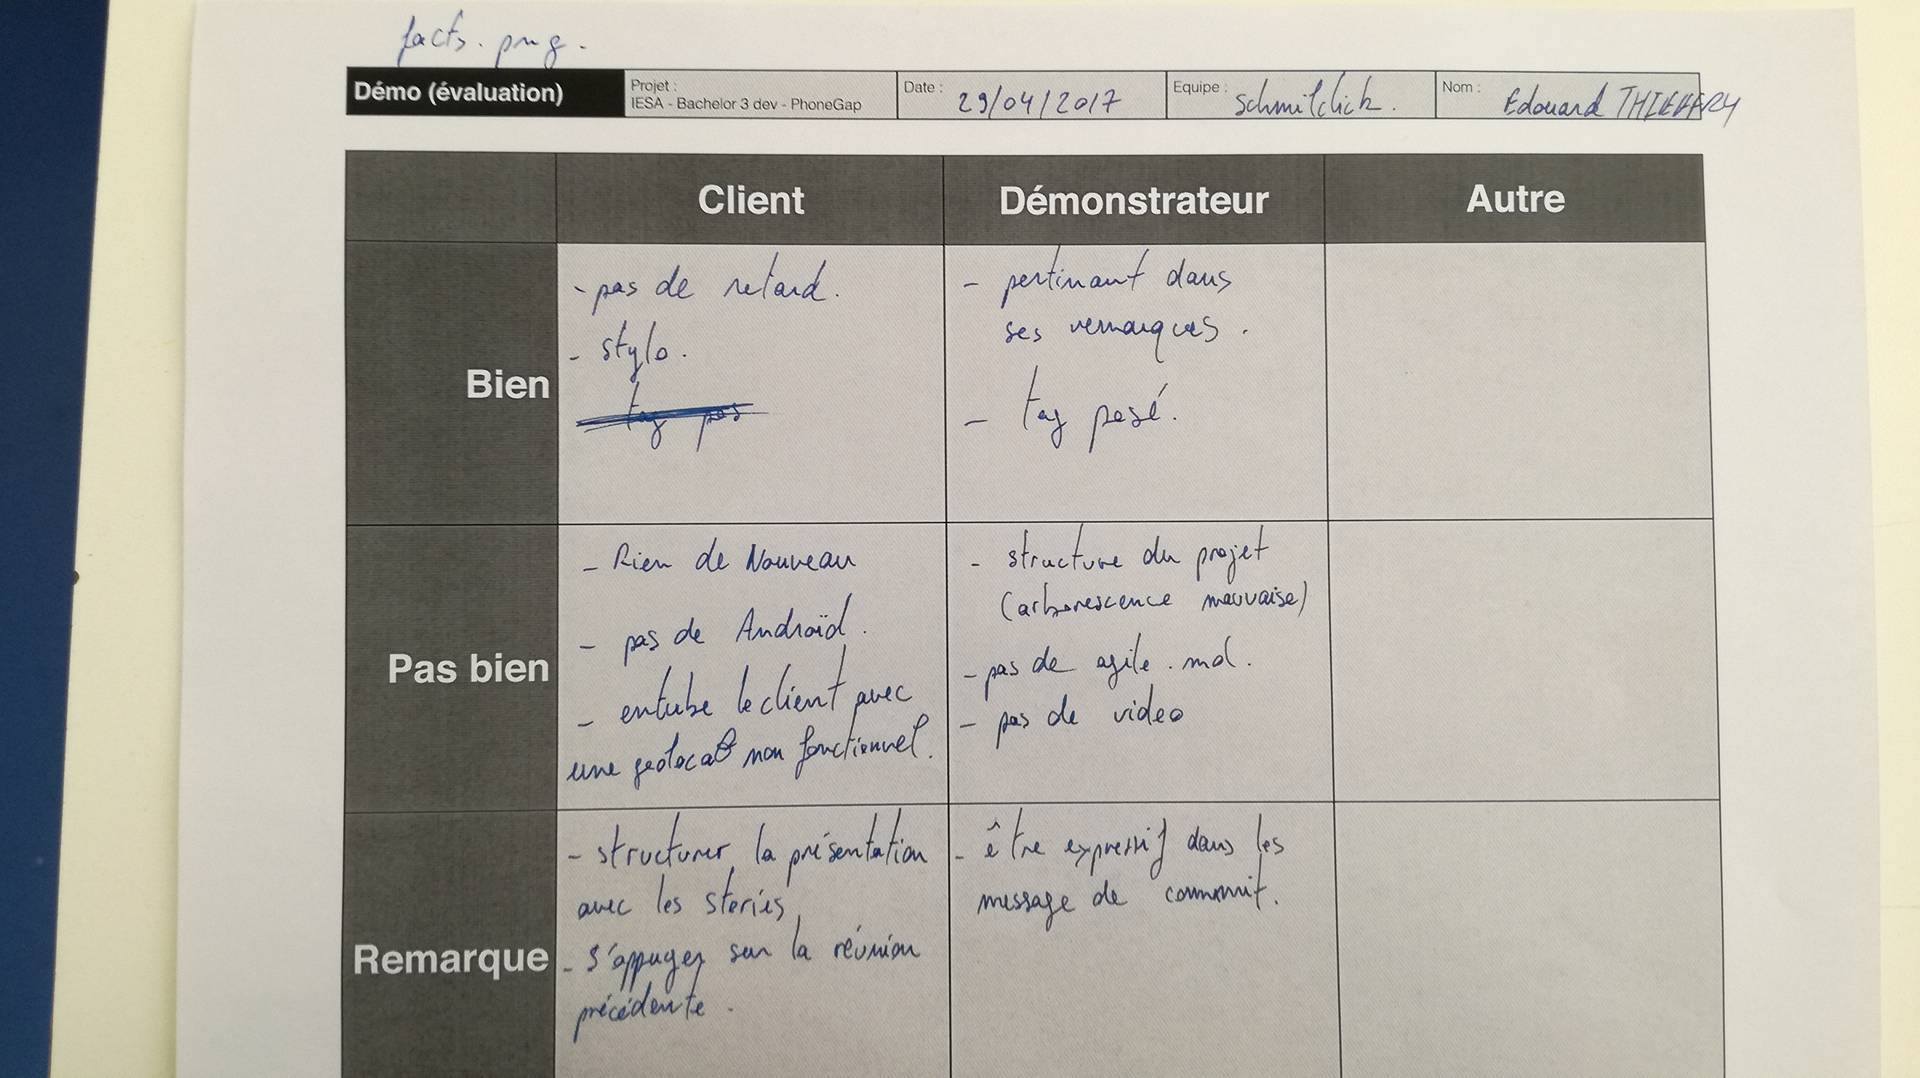 facts.png.
Démo (évaluation)
Projet :
IESA - Bachelor 3 dev - PhoneGap
Date :
29/04/2017
Equipe :
Schmilclick.
Nom :
Edouard THIERRY
Client
Démonstrateur
Autre
Bien
- pas de retard.
- stylo.
tag pos
- pertinant dans
ses remarques.
- tag posé.
Pas bien
- Rien de Nouveau
- pas de Androïd.
- entube le client avec
une geolocat° non fonctionnel.
- structure du projet
(arborescence mauvaise)
- pas de agile.md.
- pas de video
Remarque
- structurer la présentation
avec les stories
- s'appuyer sur la réunion
précédente.
- être expressif dans les
message de commit.